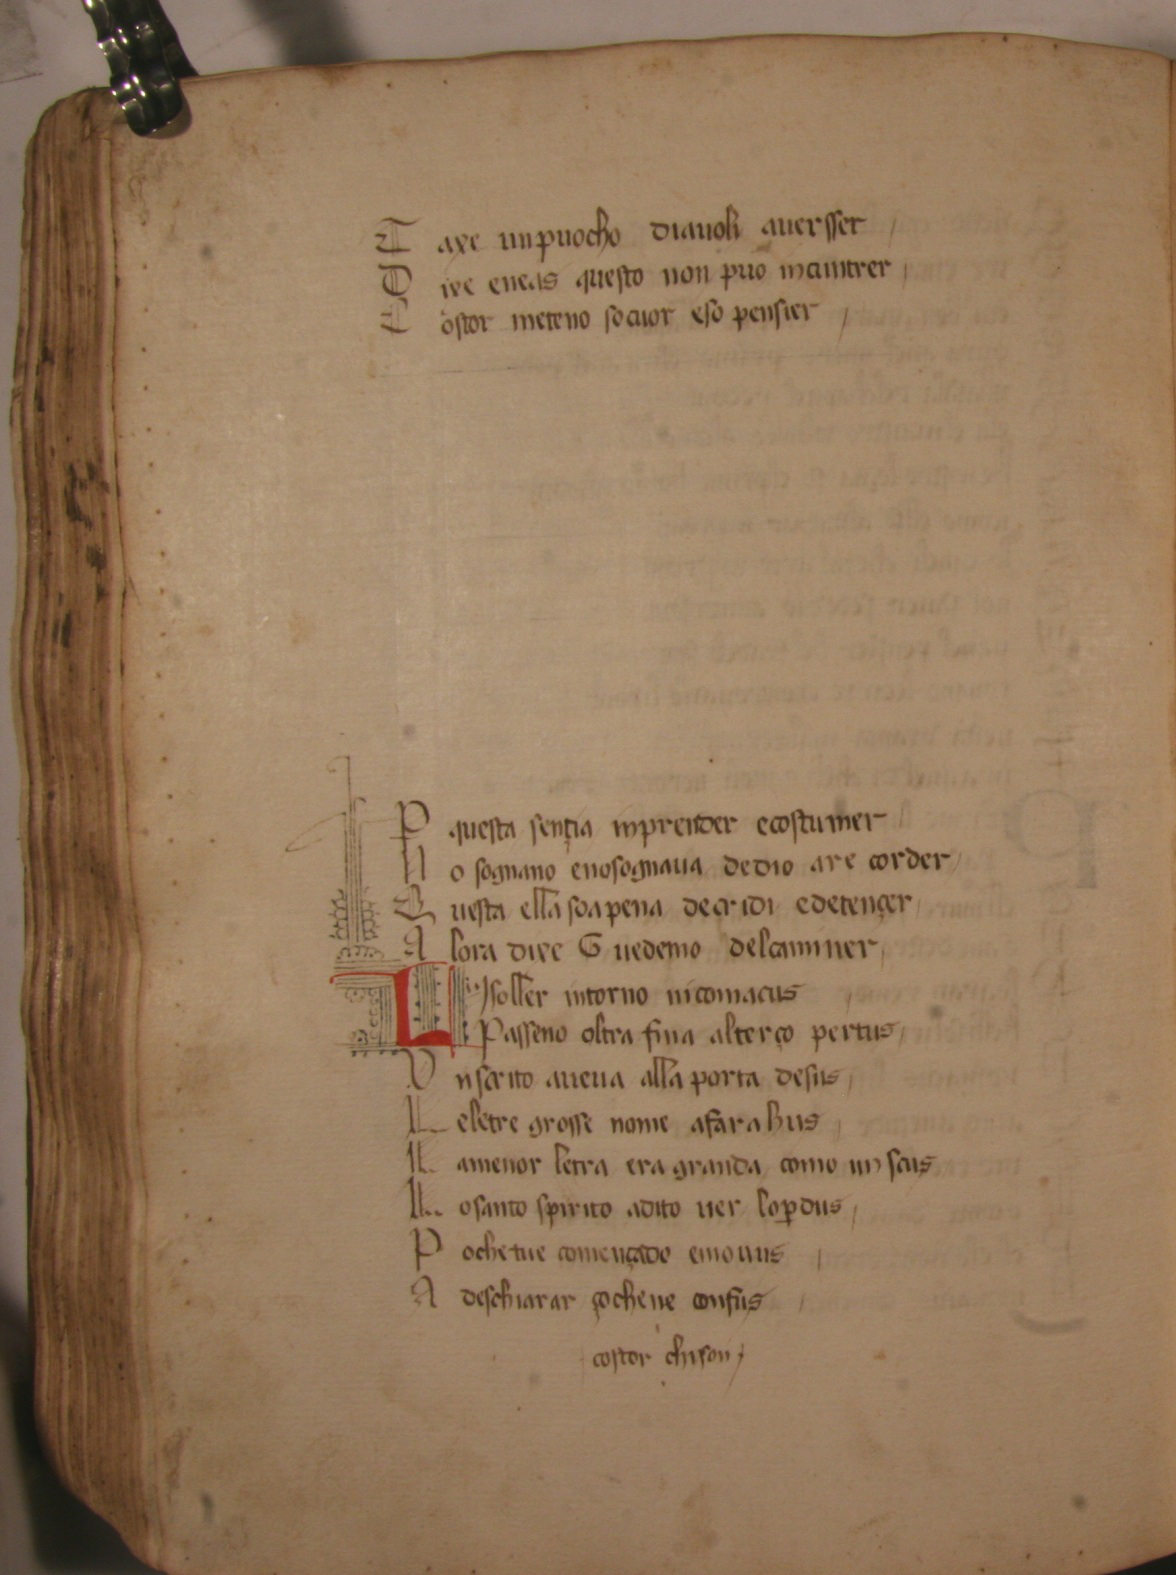 T axe un puocho diauoli auersser
D ixe eneas questo non puo mainterer
C ostor meteno so cuor eso pensier
P questa sentia inprender ecostumer
N o sognano enosognaua dedio are corder
Q uesta ella soa pena decridi edetençer
A lora dixe Guedemo delcaminer
L isoller intorno nicomacus
Passeno oltra fina alterço pertus
V nscrito aueua alla porta desus
L eletre grosse nome afarabus
L amenor letra era granda como un scus
L osanto spirito adito uer loperdus
P oche tue començade emouus
A deschiarar çochene confus
costor chison